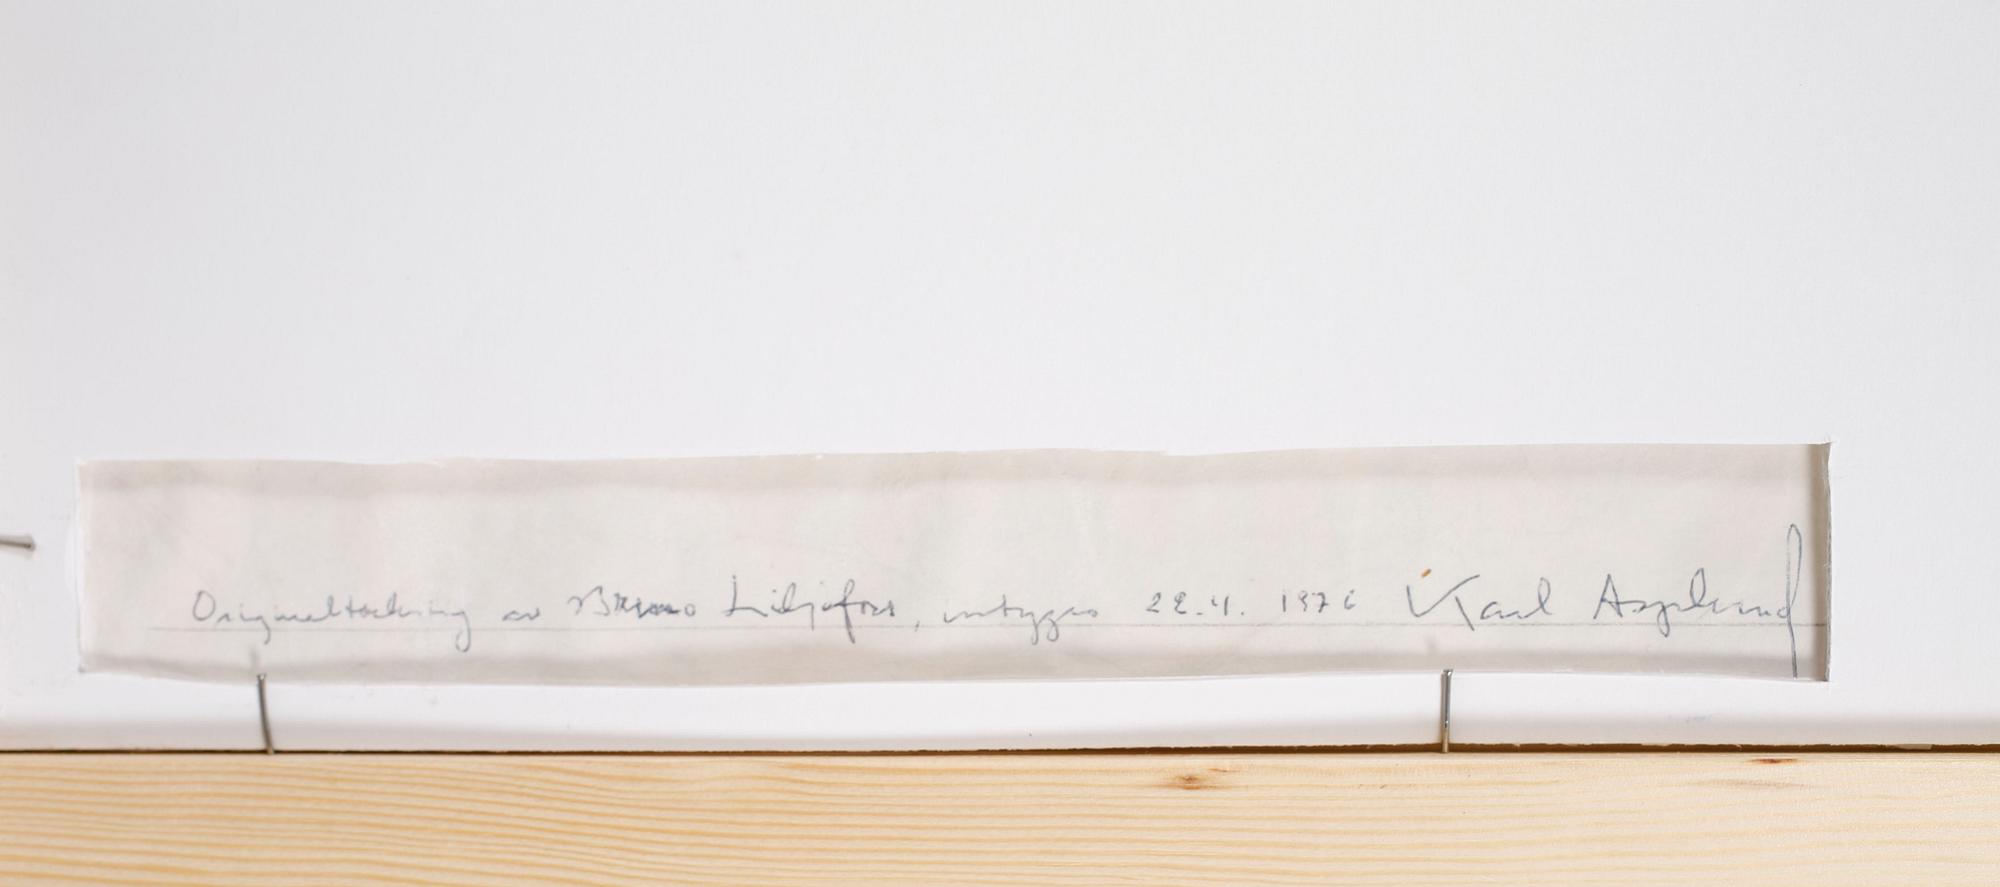 Originalteckning av Bruno Liljefors, intygas 22.4. 1976 Karl Asplund